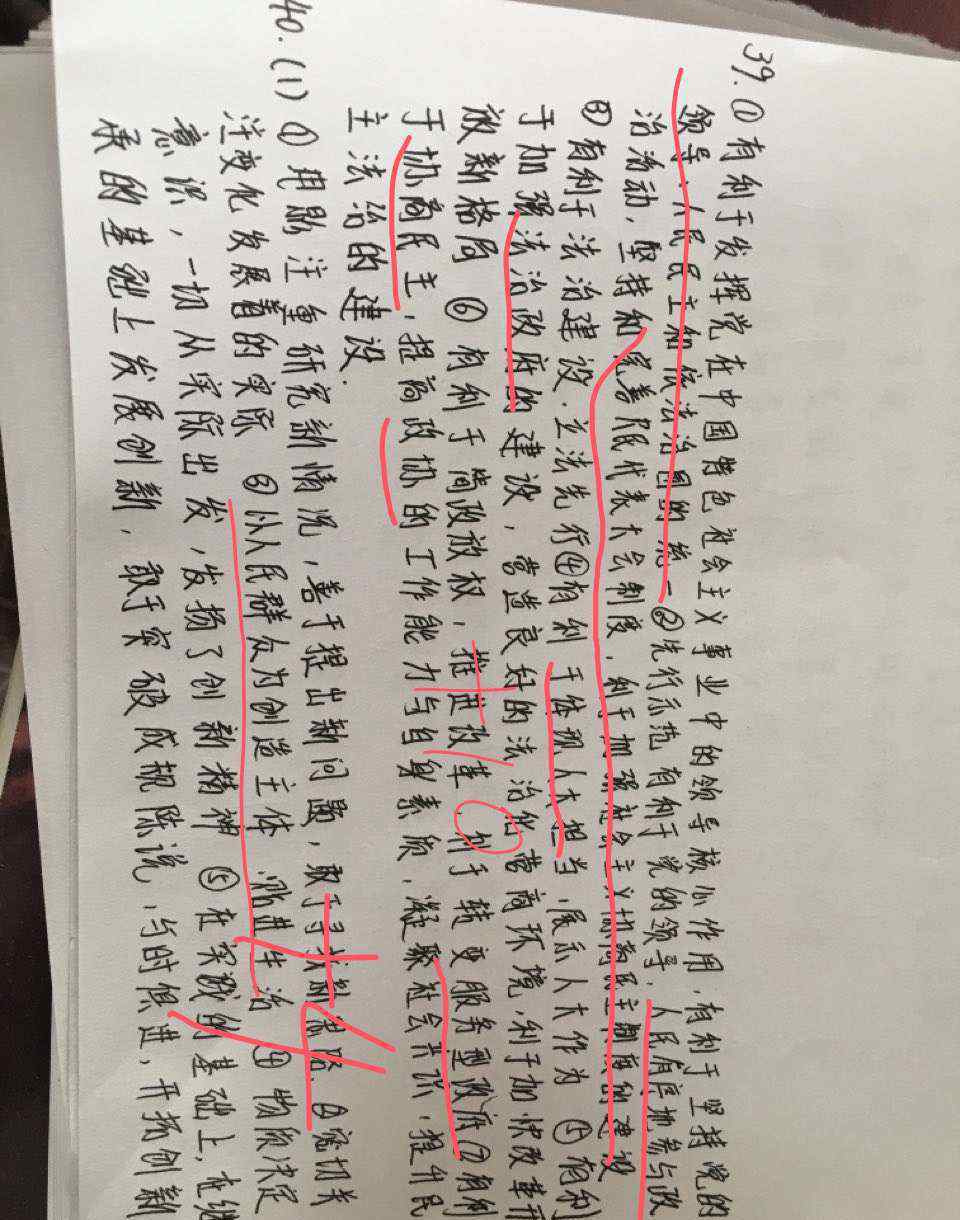 39. ① 有利于发挥党在中国特色社会主义事业中的领导核心作用,有利于坚持党的
领导、人民民主和依法治国的统一 ②先行示范有利于党的领导,人民有序地参与政
治活动,坚持和完善人民代表大会制度,利于加强社会主义协商民主制度的建设
③ 有利于法治建设.立法先行 ④有利于体现人大担当,展示人大作为 ⑤有利
于加强法治政府的建设,营造良好的法治化营商环境,利于加快改革开
放新格局 ⑥ 有利于简政放权,推进改革,利于转变服务型政府 ⑦ 有利
于协商民主,提高政协的工作能力与自身素质,凝聚社会共识,提升民
主法治的建设.
40. (1) ① 思路注重研究新情况,善于提出新问题,敢于寻找新思路. ②密切关
注变化发展着的实际 ③ 以人民群众为创造主体 贴进生活 ④ 物质决定
意识,一切从实际出发,发扬了创新精神 ⑤ 在实践的基础上,在继
承的基础上发展创新,敢于突破成规陈说,与时俱进,开拓创新